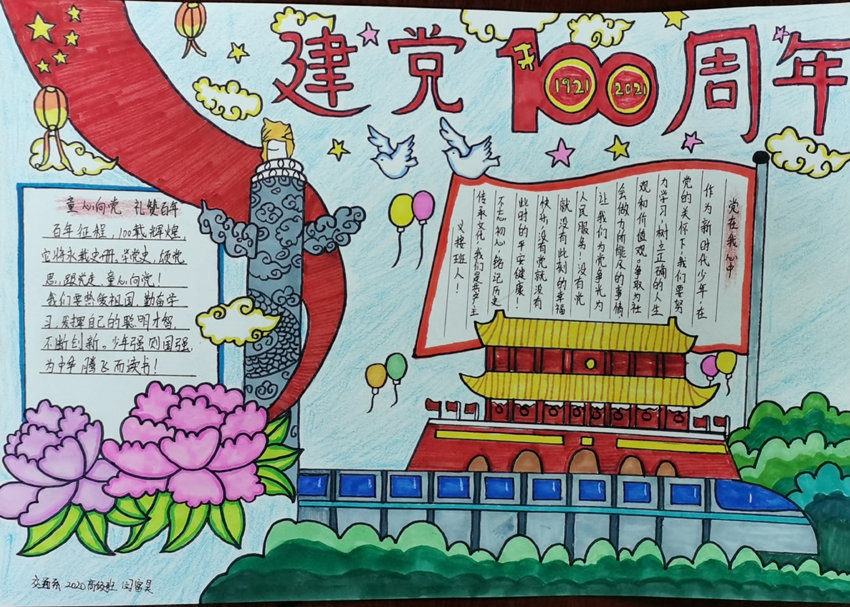 建党100周年
1921 2021
童心向党 礼赞百年
百年征程，100载辉煌，
思，跟党走，童心向党！
我们要热爱祖国，勤奋学
习，发挥自己的聪明才智，
不断创新。少年强则国强，
腾飞而读书！
党在我心中
作为新时代少年，在
党的关怀下，我们要努
力学习，树立正确的人生
观和价值观。争取为社
会做力所能及的事情，
让我们为党争光为
人民服务！没有党
就没有此刻的幸福
快乐，没有党就没有
此时的平安健康！
不忘初心，铭记历史
传承文化，我们是共产主
义接班人！
2020高级班